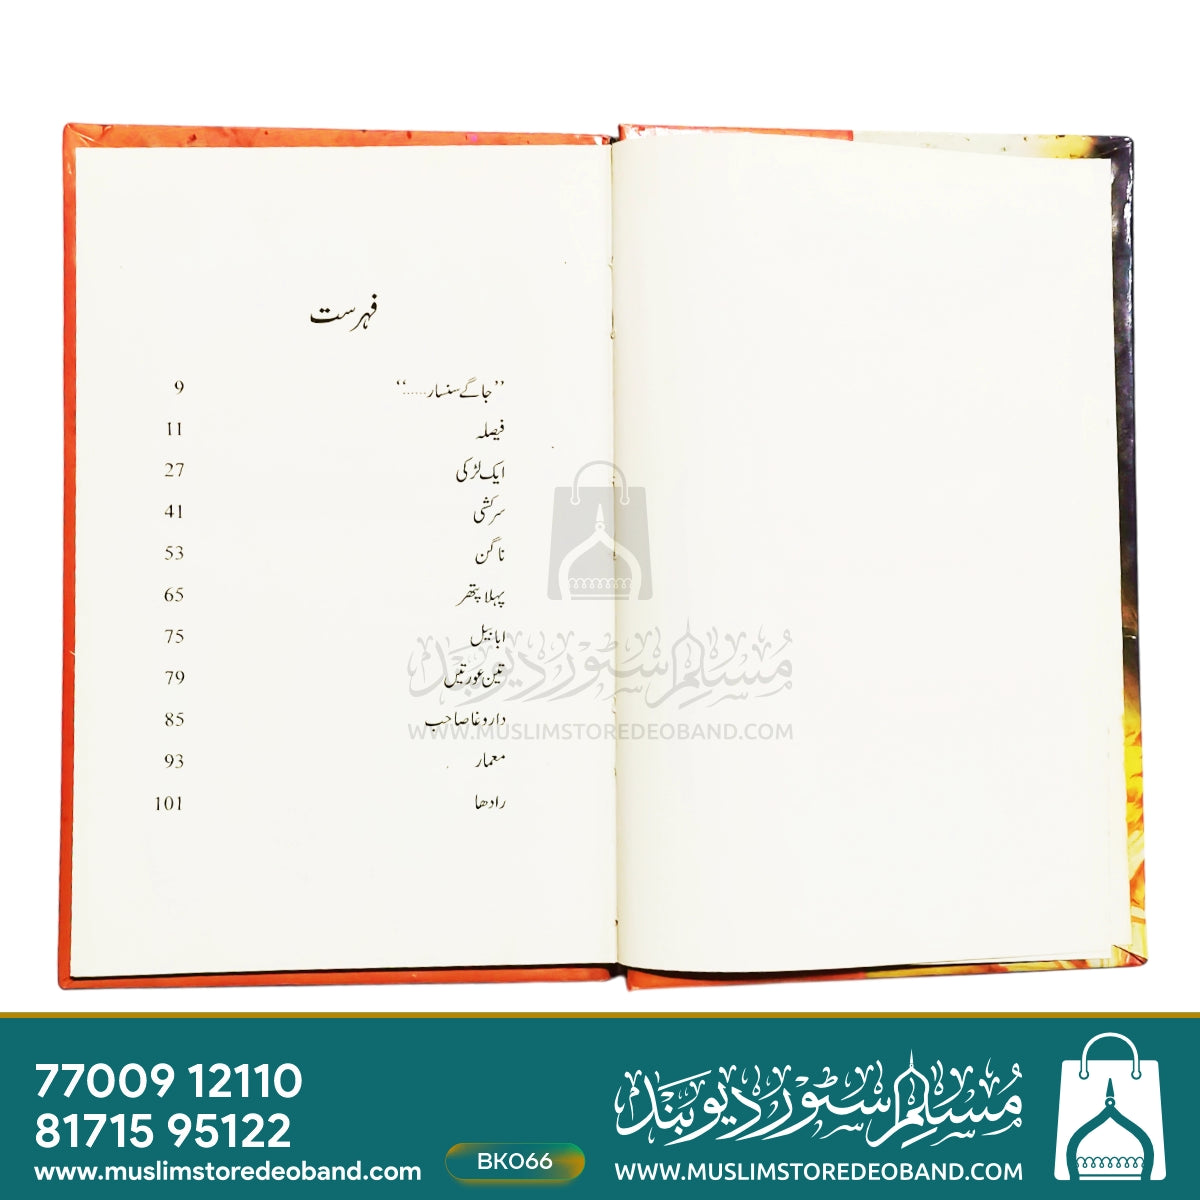 فہرست
”جاگے سنسار......“ 9
فیصلہ 11
ایک لڑکی 27
سرکشی 41
ناگن 53
پہلا پتھر 65
ابابیل 75
تین عورتیں 79
داروغا صاحب 85
معمار 93
رادھا 101
مسلم سٹور دیوبند
WWW.MUSLIMSTOREDEOBAND.COM
77009 12110
81715 95122
www.muslimstoredeoband.com
BK066
مسلم سٹور دیوبند
WWW.MUSLIMSTOREDEOBAND.COM